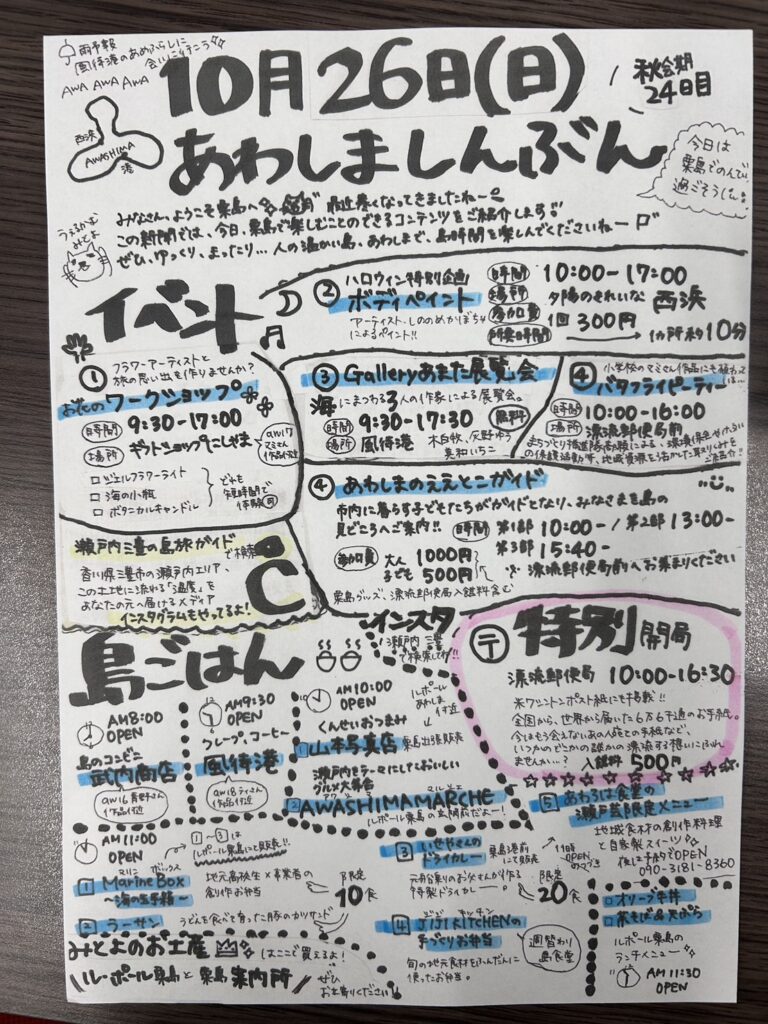 雨予報
風待港のあめふらしに
会いに行こう
AWA AWA AWA
西浜
AWASHIMA
港
10月26日(日)
秋会期
24日目
あわしましんぶん
今日は
粟島でのんで
過ごそうじぇ。
みなさん、ようこそ粟島へ 最近寒くなってきましたね〜
この新聞では、今日、粟島で楽しむことのできるコンテンツをご紹介します!
ぜひ、ゆっくり、まったり…人の温かい島、あわしまで、島時間を楽しんでくださいねー
うぇるかむ
みとよ
イベント
① フラワーアーティストと
旅の思い出を作りませんか?
お花のワークショップ
時間 9:30-17:00
場所 ギフトショップにしやま
aw17
マミさん
作品付近
□ジェルフラワーライト
□海の小瓶
□ボタニカルキャンドル
どれも
短時間で
体験可
② ハロウィン特別企画
ボディペイント
アーティスト、しののめかぼち
によるペイント!!
時間 10:00-17:00
場所 夕陽のきれいな 西浜
参加費 1回 300円
所要時間 1カ所 約10分
③ Galleryあまた展覧会
海にまつわる3人の作家による展覧会。
時間 9:30-17:30 無料
場所 風待港
木白牧、灰野ゆう
真和いちこ
④ 小学校のマミさん作品にも
バタフライピーティー
時間 10:00-16:00
場所 漂流郵便局前
まちづくり推進隊詫間による、環境保全や
の保護活動等、地域資源を活かした取り組みを
ご紹介!!
④ あわしまのええとこガイド
市内に暮らす子どもたちがガイドとなり、みなさまを島の
見どころへご案内!! 時間 第1部 10:00-/第2部 13:00-
第3部 15:40-
参加費 大人 1000円
子ども 500円
漂流郵便局前へお集まりください
粟島グッズ、漂流郵便局入館料含む
瀬戸内三豊の島旅ガイドで検索
香川県三豊市の瀬戸内エリア。
この土地に流れる「温度」を
あなたの元へ届けるメディア
インスタグラムもやってるよ!
インスタ
瀬戸内 三豊
で検索してね!!
〒 特別開局
漂流郵便局 10:00-16:30
米ワシントンポスト紙にも掲載!!
全国から、世界から届いた6万6千通のお手紙。
今はもう会えないあの人やとの手紙など、
いつかのどこかの誰かの漂流する想いにふれ
ませんか…? 入館料 500円
島ごはん
AM8:00
OPEN
島のコンビニ
武内商店
aw16 青野さん
作品付近
AM9:30
OPEN
クレープ、コーヒー
風待港
aw18 ティさん
作品付近
AM10:00
OPEN
ルポール
あわしま
付近
くんせいおつまみ
1 山本写真店 粟島出張販売
瀬戸内をテーマにしておいしい
グルメ大集合
アワシマ マルシェ
2 AWASHIMAMARCHE
ルポール粟島の玄関前だよー!
AM11:00
OPEN
①~③は
ルポール粟島にて販売!!
マリン ボックス
1 Marine Box
〜海の玉手箱〜
地元高校生×事業者の
創作お弁当
限定
10食
2 ラーサン
うどんを食べて育った豚のカツサンド
3 いせやさんの
ドライカレー
粟島港前
にて販売
11時
OPEN
のつづき
元船乗りのお父さんが作る
特製ドライカレー
限定
20食
ジジ キッチン
4 JIJI KITCHENの
手づくりお弁当
週替わり
島食堂
旬の地元食材をふんだんに
使ったお弁当。
5 あわろは食堂の
瀬戸芸限定メニュー
地域食材の創作料理
と自家製スイーツ
夜は予約でOPEN
090-3181-8360
□オリーブ牛丼
□茶そば&天ぷら
ルポール粟島の
ランチメニュー
AM11:30
OPEN
みとよのお土産 はここで買えるよ!
ル・ポール粟島と粟島案内所
ぜひ
お立寄りください